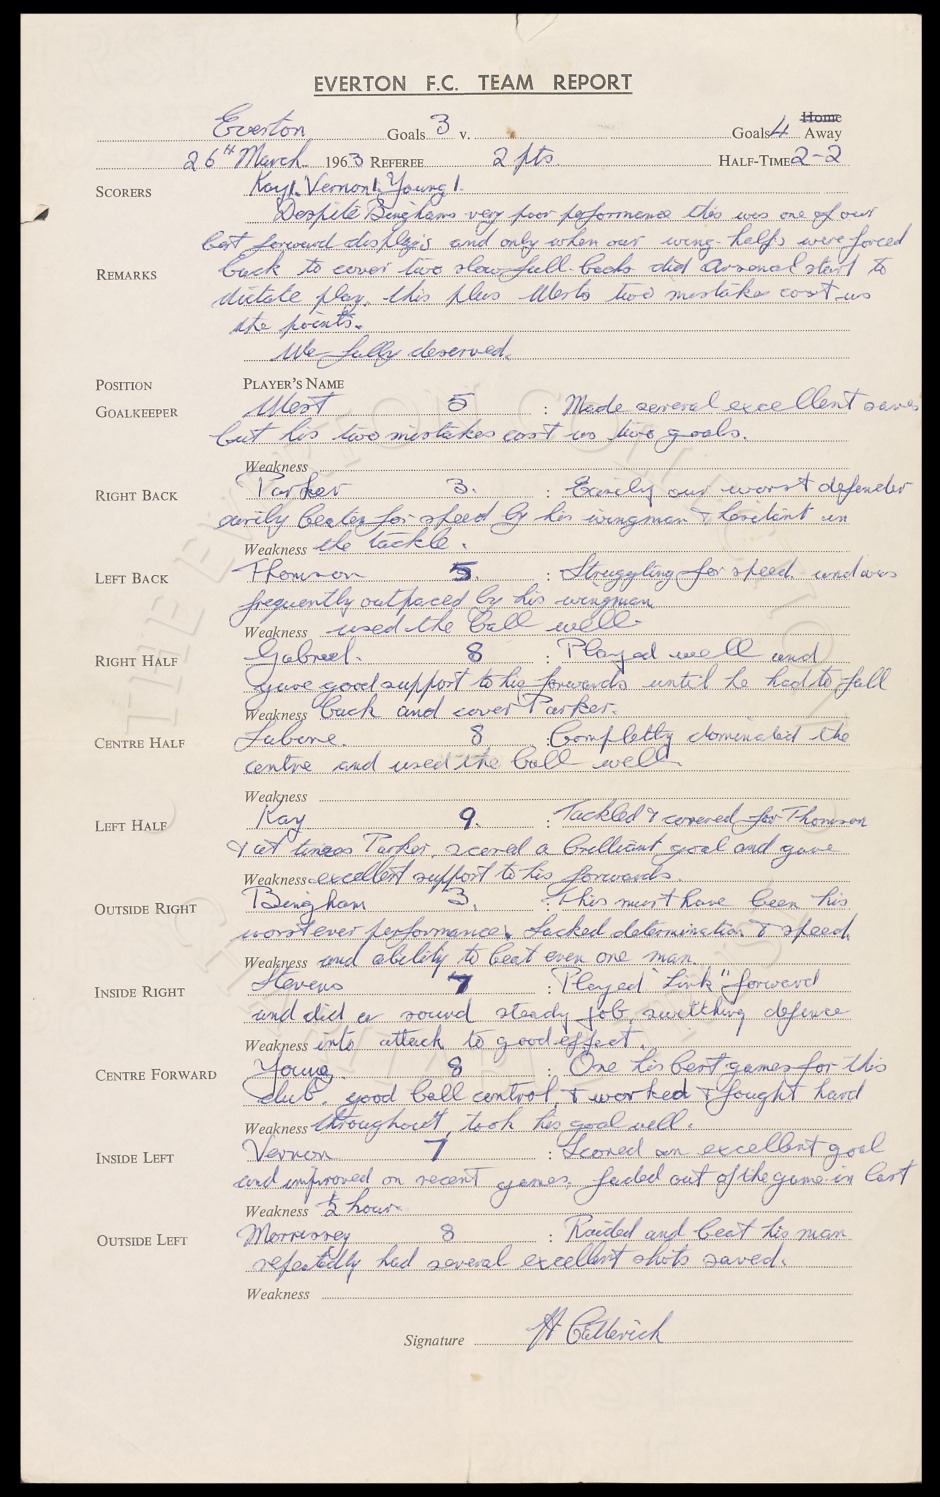 EVERTON F.C. TEAM REPORT
Home
Everton Goals 3 v. Goals 4 Away
26th March 1963 REFEREE 2 pts HALF-TIME 2-2
SCORERS Kay 1. Vernon 1. Young 1.
Despite Binghams very poor performance this was one of our
best forward displays and only when our wing-halfs were forced
REMARKS back to cover two slow full-backs did Arsenal start to
dictate play, this plus Wests two mistakes cost us
the points.
We fully deserved.
POSITION PLAYER'S NAME
GOALKEEPER West 5 : Made several excellent saves
but his two mistakes cost us two goals.
Weakness
RIGHT BACK Parker 3. : Easily our worst defender
easily beaten for speed by his wingman & hesitant in
Weakness the tackle.
LEFT BACK Thomson 5. : Struggling for speed and was
frequently outpaced by his wingman
Weakness used the ball well.
RIGHT HALF Gabriel. 8 : Played well and
gave good support to his forwards until he had to fall
Weakness back and cover Parker.
CENTRE HALF Labone. 8 : Completly dominated the
centre and used the ball well.
Weakness
LEFT HALF Kay 9. : Tackled & covered for Thomson
& at times Parker, scored a brilliant goal and gave
Weakness excellent support to his forwards.
OUTSIDE RIGHT Bingham 3. : This must have been his
worst ever performance. Lacked determination & speed
Weakness and ability to beat even one man.
INSIDE RIGHT Stevens 7 : Played "Link" forward
and did a sound steady job, switthing defence
Weakness into attack to good effect.
CENTRE FORWARD Young. 8 : One his best games for this
club, good ball control, & worked & fought hard
Weakness throughout, took his goal well.
INSIDE LEFT Vernon 7 : Scored an excellent goal
and improved on recent games, faded out of the game in last
Weakness ½ hour.
OUTSIDE LEFT Morrissey 8 : Raided and beat his man
repeatedly had several excellent shots saved.
Weakness
Signature H Catterick
THE EVERTON COLLECTION CHARITABLE TRUST